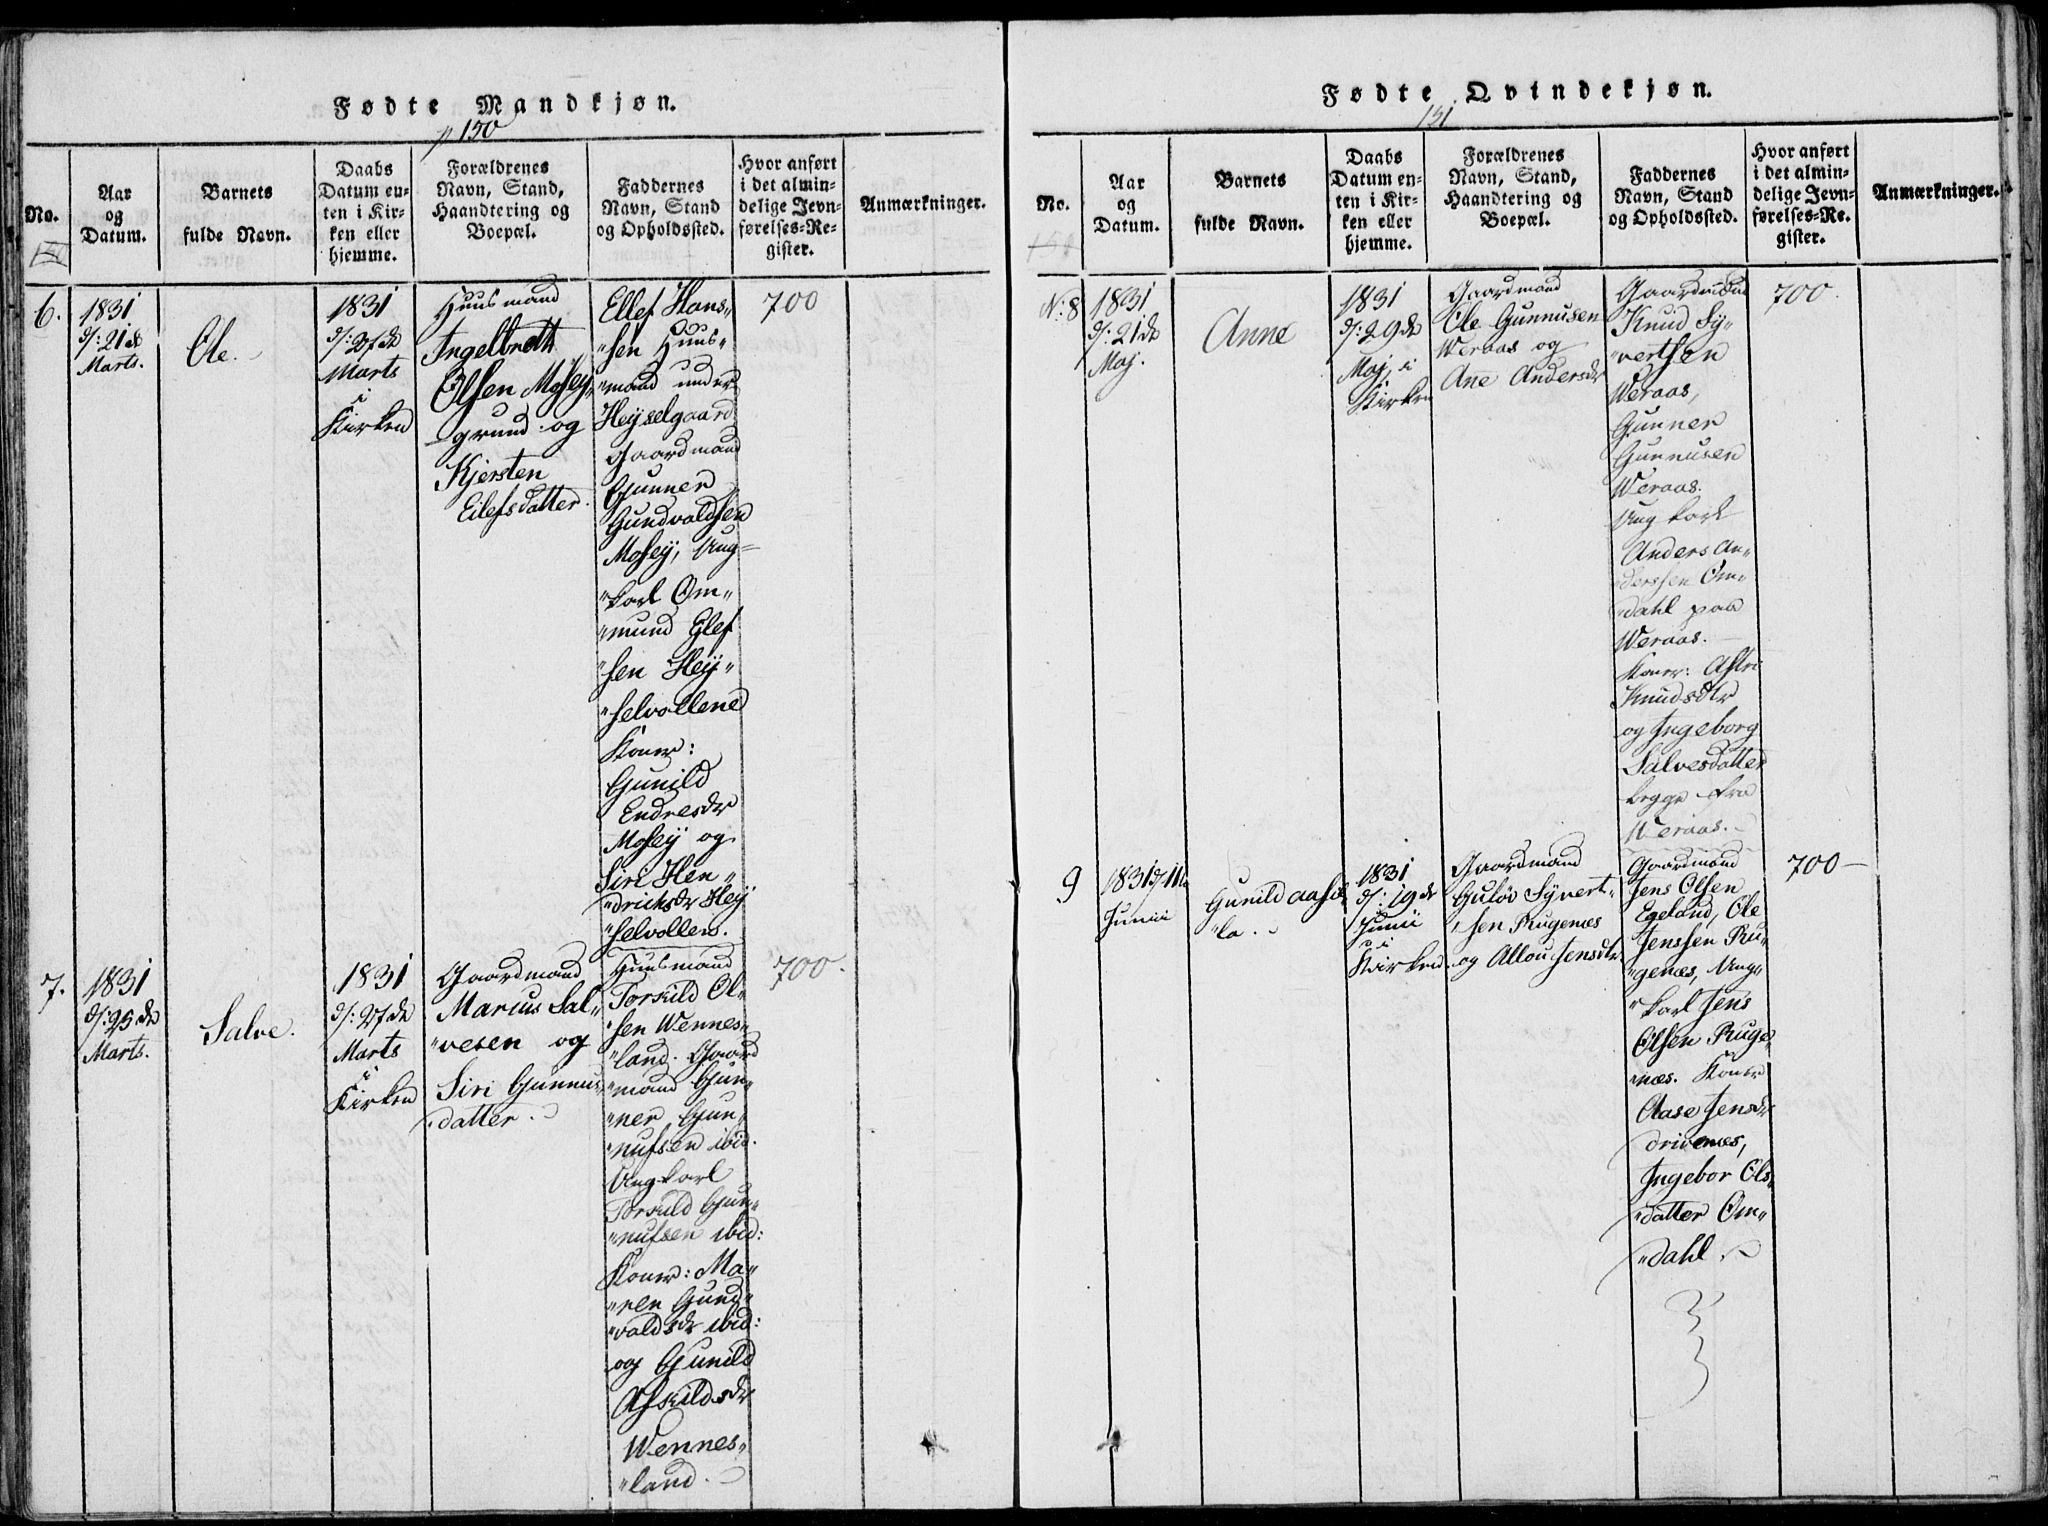 Fødte Mandkjøn.
150
No.
Aar
og
Datum.
Barnets
fulde Navn.
Daabs
Datum en-
ten i Kir-
ken eller
hjemme.
Forældrenes
Navn, Stand,
Haandtering og
Boepæl.
Faddernes
Navn, Stand
og Opholdssted.
Hvor anført
i det almin-
delige Jevn-
førelses-Re-
gister.
Anmærkninger.
6.
1831
d: 21de
Marts.
Ole.
1831
d: 27de
Marts
i
Kirken
Huusmand
Ingelbrett
Olsen Mosey
grund og
Kjersten
Eilefsdatter.
Ellef Hans-
sen Huus-
mand under
Heyselgaard
Gaardmand
Gunner
Gundvaldsen
Mosey, Ung-
karl Om-
mund Elef
sen Hey-
selvollene
Koner:
Gunild
Endresdr
Mosey og
Siri Hen-
drichsdr Hey
selvollen.
700
7.
1831
d: 25de
Marts.
Salve.
1831
d: 27de
Marts
i
Kirken
Gaardmand
Marius Sal-
vesen og
Siri Gunnus-
datter.
Huusmand
Torkild Ol-
sen Wennes-
land. Gaard
mand Gun-
ner Gun-
nufsen ibid.
Ungkarl
Torkild Gun-
nufsen ibid:
Koner: Ma-
ren Gund-
valdsdr ibid:
og Gunild
Askildsdr
Wennes-
land.
700.
Fødte Qvindekjøn.
151
No.
Aar
og
Datum.
Barnets
fulde Navn.
Daabs
Datum en-
ten i Kir-
ken eller
hjemme.
Forældrenes
Navn, Stand,
Haandtering og
Boepæl.
Faddernes
Navn, Stand
og Opholdssted.
Hvor anført
i det almin-
delige Jevn-
førelses-Re-
gister.
Anmærkninger.
N: 8
1831
d: 21de
Maj.
Anne
1831
d: 29de
Maj, i
Kirken
Gaardmand
Ole Gunnusen
Weraas og
Ane Andersdr
Gaardmænd
Knud Sy-
vertsen
Weraas,
Gunner
Gunnusen
Weraas.
Ung karl
Anders An-
derssen Om-
dahl paa
Weraas.
Koner: Astri
Knudsdtr
og Ingeborg
Salvesdatter
begge fra
Weraas.
700.
9
1831 d: 11te
Junii
Gunild Aase
la.
1831
d: 19de
Junii
i
Kirken
Gaardmand
Guløv Syvert-
sen Rugenæs
og Allou Jensdtr.
Gaardmand
Jens Olsen
Egeland, Ole
Jenssen Ru-
genæs, Ung-
karl Jens
Olsen Ruge-
næs. Koner
Aase Jensdr
drivenæs,
Ingebor Ols-
datter Om-
dahl.
700